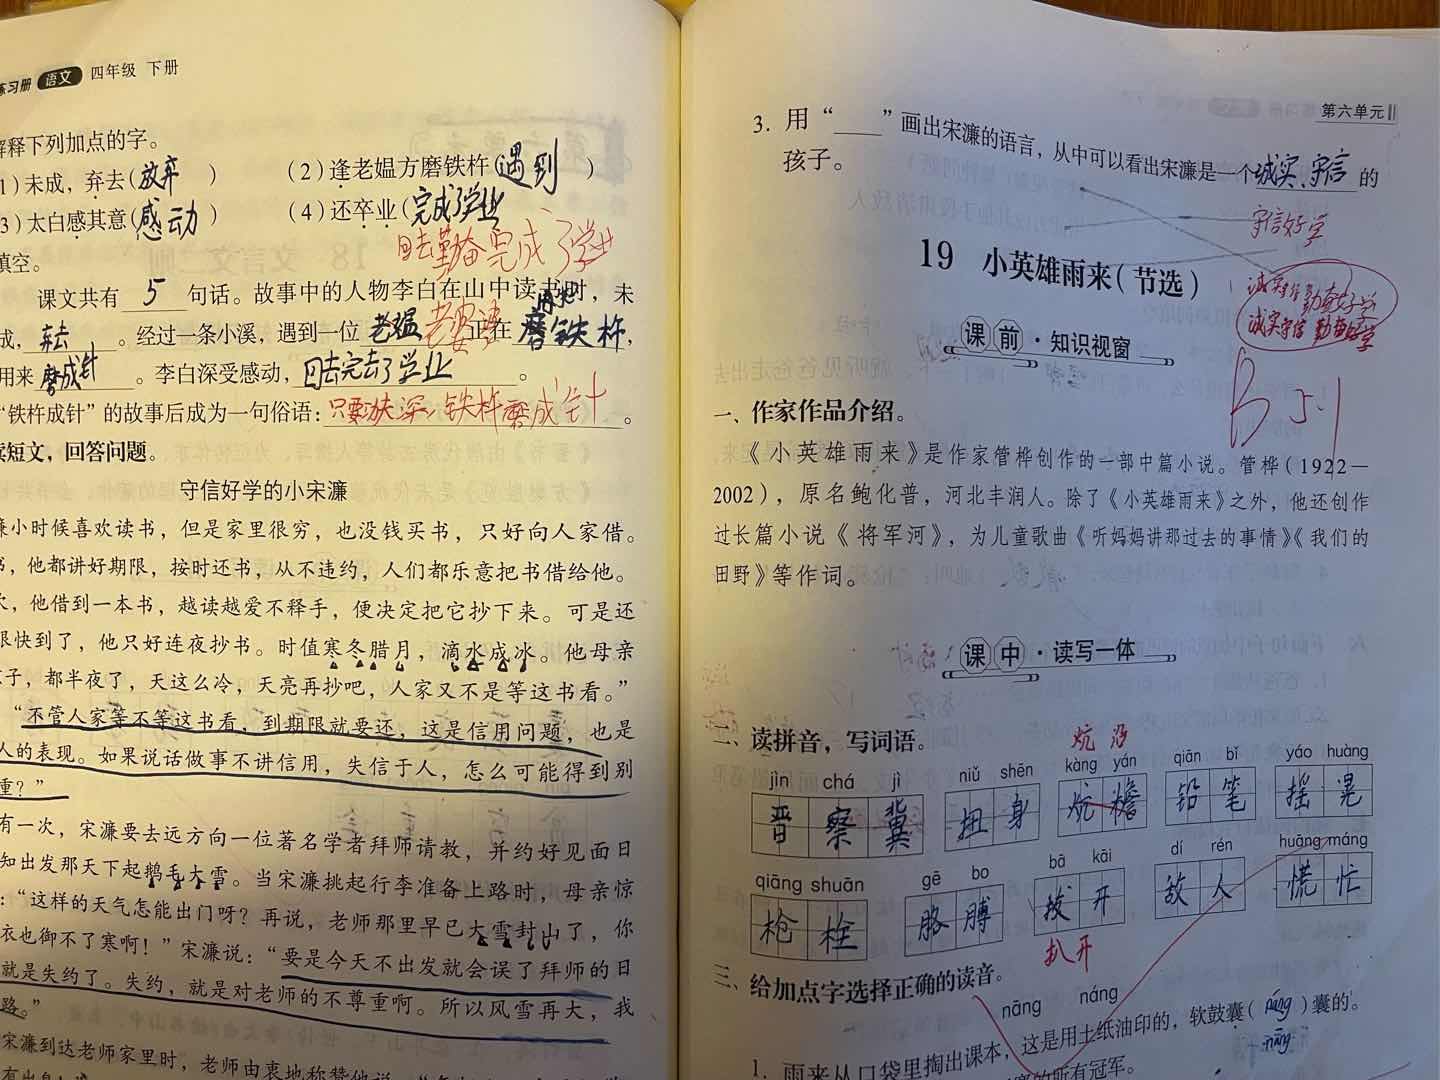 练习册 语文 四年级 下册
解释下列加点的字。
1)未成，弃去(放弃) (2)逢老媪方磨铁杵(遇到)
3)太白感其意(感动) (4)还卒业(完成了学业
回去勤奋完成了学业
填空。
课文共有 5 句话。故事中的人物李白在山中读书时，未
成，弃去。经过一条小溪，遇到一位 老媪 老婆婆 正在 磨铁杵，
用来 磨成针。李白深受感动，回去完去了学业。
“铁杵成针”的故事后成为一句俗语：只要功夫深，铁杵磨成针。
读短文，回答问题。
守信好学的小宋濂
濂小时候喜欢读书，但是家里很穷，也没钱买书，只好向人家借。
书，他都讲好期限，按时还书，从不违约，人们都乐意把书借给他。
次，他借到一本书，越读越爱不释手，便决定把它抄下来。可是还
限快到了，他只好连夜抄书。时值寒冬腊月，滴水成冰。他母亲
孩子，都半夜了，天这么冷，天亮再抄吧，人家又不是等这书看。”
“不管人家等不等这书看，到期限就要还，这是信用问题，也是
人的表现。如果说话做事不讲信用，失信于人，怎么可能得到别
重？”
有一次，宋濂要去远方向一位著名学者拜师请教，并约好见面日
知出发那天下起鹅毛大雪。当宋濂挑起行李准备上路时，母亲惊
：“这样的天气怎能出门呀？再说，老师那里早已大雪封山了，你
衣也御不了寒啊！”宋濂说：“要是今天不出发就会误了拜师的日
就是失约了。失约，就是对老师的不尊重啊。所以风雪再大，我
路。”
宋濂到达老师家里时，老师由衷地称赞他说：“
有出息！
第六单元
3. 用“____”画出宋濂的语言，从中可以看出宋濂是一个诚实、守信的
孩子。
守信好学
诚实守信 勤奋好学
诚实守信 勤奋好学
19 小英雄雨来(节选)
课前·知识视窗
B 5.1
一、作家作品介绍。
《小英雄雨来》是作家管桦创作的一部中篇小说。管桦(1922—
2002)，原名鲍化普，河北丰润人。除了《小英雄雨来》之外，他还创作
过长篇小说《将军河》，为儿童歌曲《听妈妈讲那过去的事情》《我们的
田野》等作词。
课中·读写一体
二、读拼音，写词语。
炕沿
jìn chá jì niǔ shēn kàng yán qiān bǐ yáo huàng
晋察冀 扭身 炕檐 铅笔 摇晃
qiāng shuān gē bo bā kāi dí rén huāng máng
枪栓 胳膊 拔开 敌人 慌忙
扒开
三、给加点字选择正确的读音。
nāng náng
1. 雨来从口袋里掏出课本，这是用土纸油印的，软鼓囊(náng)囊的。
nāng
的所有冠军。